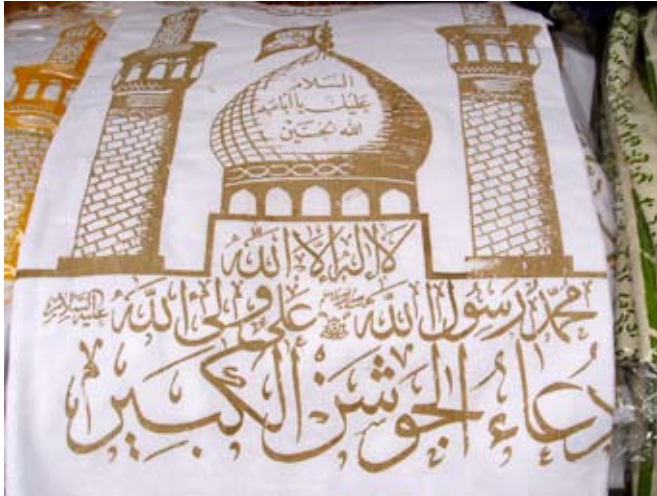 السلام
عليك يا ابا عبد
الله الحسين
لا اله الا الله
محمد رسول الله علي ولي الله عليه السلام
دعاء الجوشن الكبير